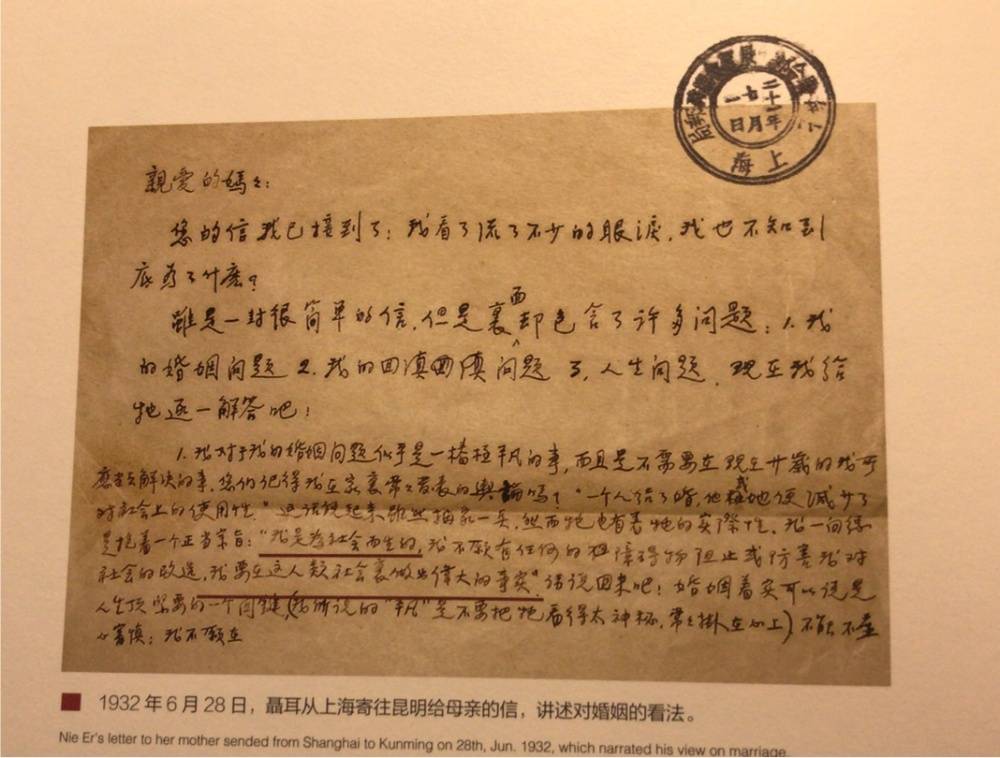 二十一年
七月
一日
上海
親愛的媽々：
您的信我已接到了；我看了流了不少的眼淚，我也不知到
底為了什麽？
雖是一封很简單的信，但是裏面却包含了許多问題：1.我
的婚姻问題 2.我的回滇问題 3.人生问題．现在我给
牠逐一解答吧！
1.我对于我的婚姻问題似乎是一樁極平凡的事，而且是不需要在现在廿歲的我所
應去解决的事．您们记得我在家裏常々發表的輿論嗎？"一个人结了婚，他或她便减少了
对社会上的使用性．"这话说起来雖然抽象一臭，然而牠也有着牠的实際性．我一向總
是抱着一个正当宗旨："我是為社会而生的，我不願有任何的障碍物阻止或防害我对
社会的改造，我要在这人類社会裏做出偉大的事实．"话说回来吧！婚姻着实可以说是
人生顶紧要的一个闰鍵（我所说的"平凡"是不要把牠看得太神秘，常々掛在心上）不能不
審慎；我不願在
1932 年 6 月 28 日，聂耳从上海寄往昆明给母亲的信，讲述对婚姻的看法。
Nie Er's letter to her mother sended from Shanghai to Kunming on 28th, Jun. 1932, which narrated his view on marriage.